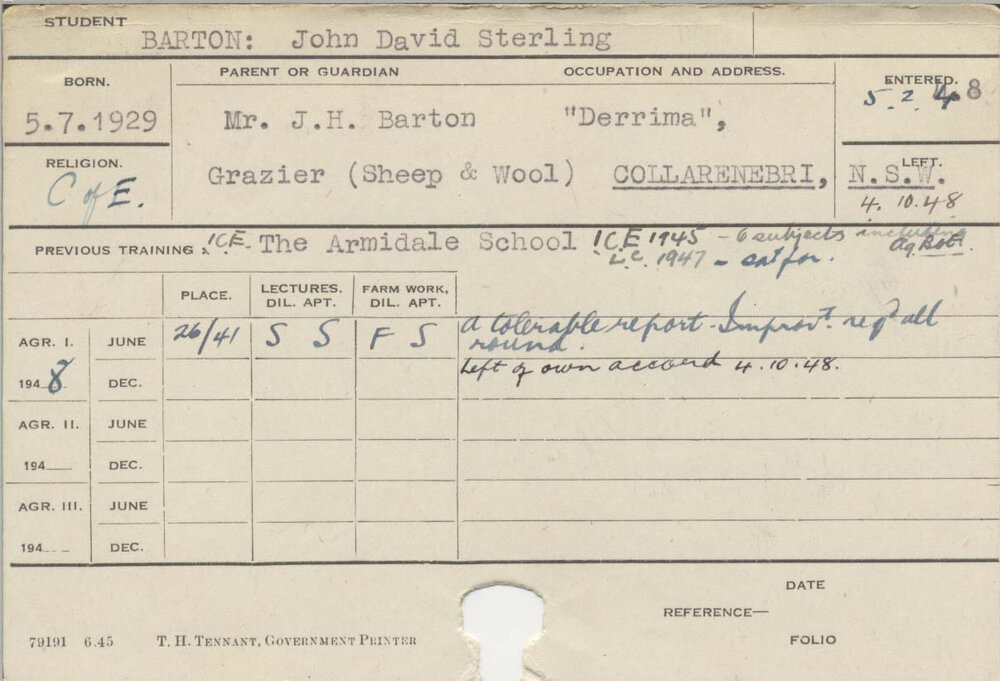 STUDENT
BARTON: John David Sterling
BORN. PARENT OR GUARDIAN OCCUPATION AND ADDRESS. ENTERED.
5.7.1929 Mr. J.H. Barton "Derrima", 5.2.48
RELIGION. LEFT.
C of E. Grazier (Sheep & Wool) COLLARENEBRI, N.S.W.
4.10.48
PREVIOUS TRAINING ICE. The Armidale School ICE 1945 - 6 subjects including Ag Bot.
L.C. 1947 - sat for.
PLACE. LECTURES. DIL. APT. FARM WORK, DIL. APT.
AGR. I. JUNE 26/41 S S F S A tolerable report - Improvt. reqd all
round.
1948 DEC. Left of own accord 4.10.48.
AGR. II. JUNE
194 DEC.
AGR. III. JUNE
194 DEC.
DATE
REFERENCE—
79191 6.45 T. H. TENNANT, GOVERNMENT PRINTER FOLIO